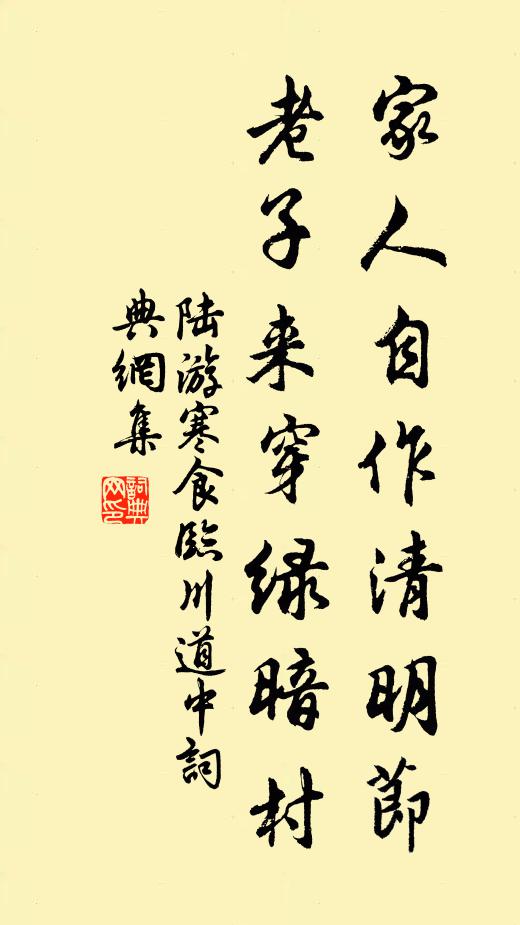 家人自作清明節
老子来穿緑暗村
陆游寒食臨川道中詞
典網集
詞典网印